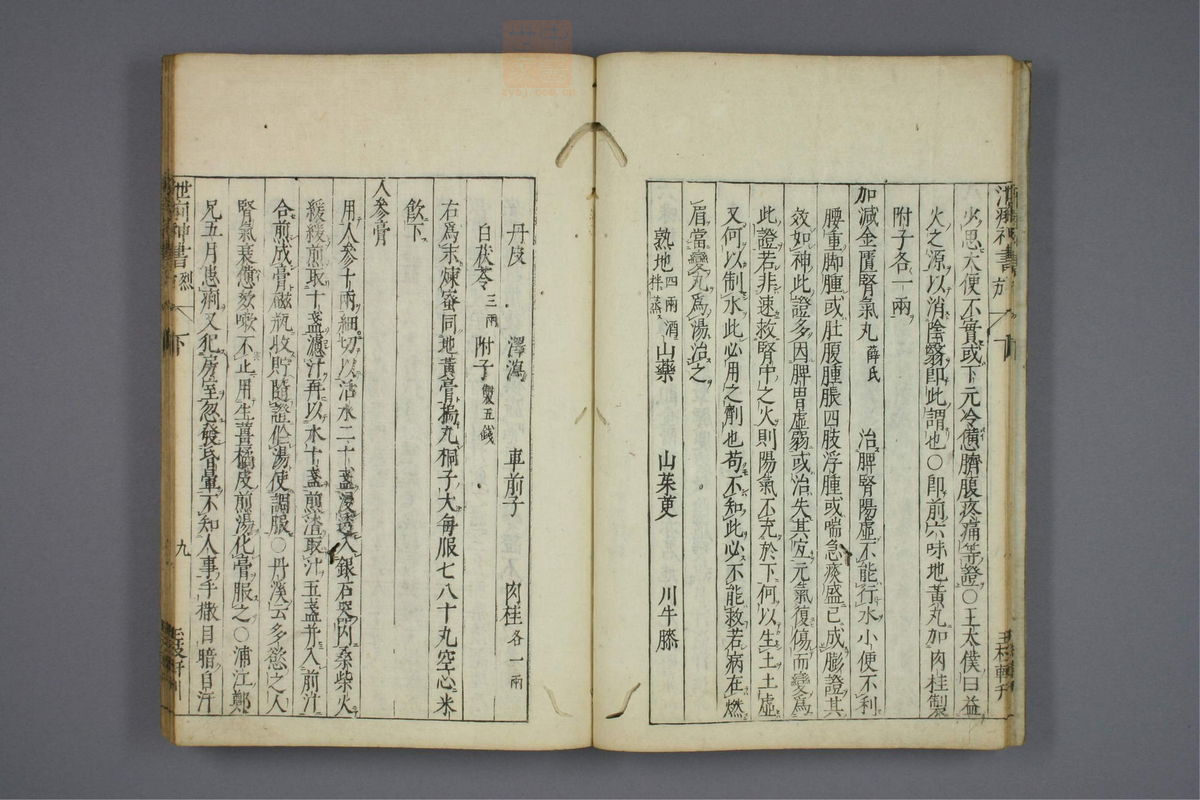 少思大便不實或下元冷憊臍腹疼痛等證○王太僕曰益
火之源以消陰翳即此謂也○即前六味地黃丸加肉桂製
附子各一兩
加減金匱腎氣丸 薛氏 治脾腎陽虛不能行水小便不利
腰重脚腫或肚腹腫脹四肢浮腫或喘急痰盛已成膨證其
效如神此證多因脾胃虛弱或治失其宜元氣復傷而變爲
此證若非速救腎中之火則陽氣不充於下何以生土土虛
又何以制水此必用之劑也苟不知此必不能救若病在燃
眉當變丸爲湯治之
熟地四兩酒拌蒸 山藥 山茱萸 川牛膝
丹皮 澤瀉 車前子 肉桂各一兩
白茯苓三兩 附子製五錢
右爲末煉蜜同地黃膏搗丸桐子大每服七八十丸空心米
飲下
人參膏
用人參十兩細切以活水二十盞浸透入銀石器内桑柴火
緩緩煎取十盞濾汁再以水十盞煎渣取汁五盞并入前汁
合煎成膏磁瓶收貯隨證作湯使調服○丹溪云多慾之人
腎氣衰憊欬嗽不止用生薑橘皮煎湯化膏服之○浦江鄭
兄五月患痢又犯房室忽發昏暈不知人事手撒目暗自汗
九